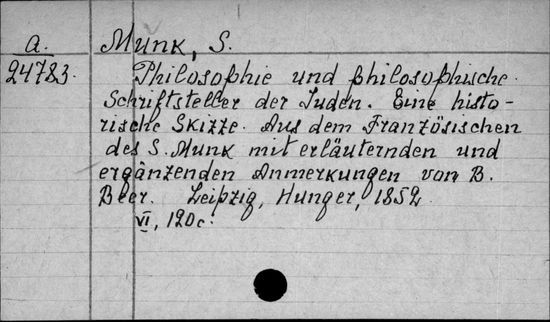 a. Munk, S.
24783. Philosophie und philosophische
Schriftsteller der Juden. Eine histo-
rische Skizze. Aus dem Französischen
des S. Munk mit erläuternden und
ergänzenden Anmerkungen von B.
Beer. Leipzig, Hunger, 1852
VI, 120 c.